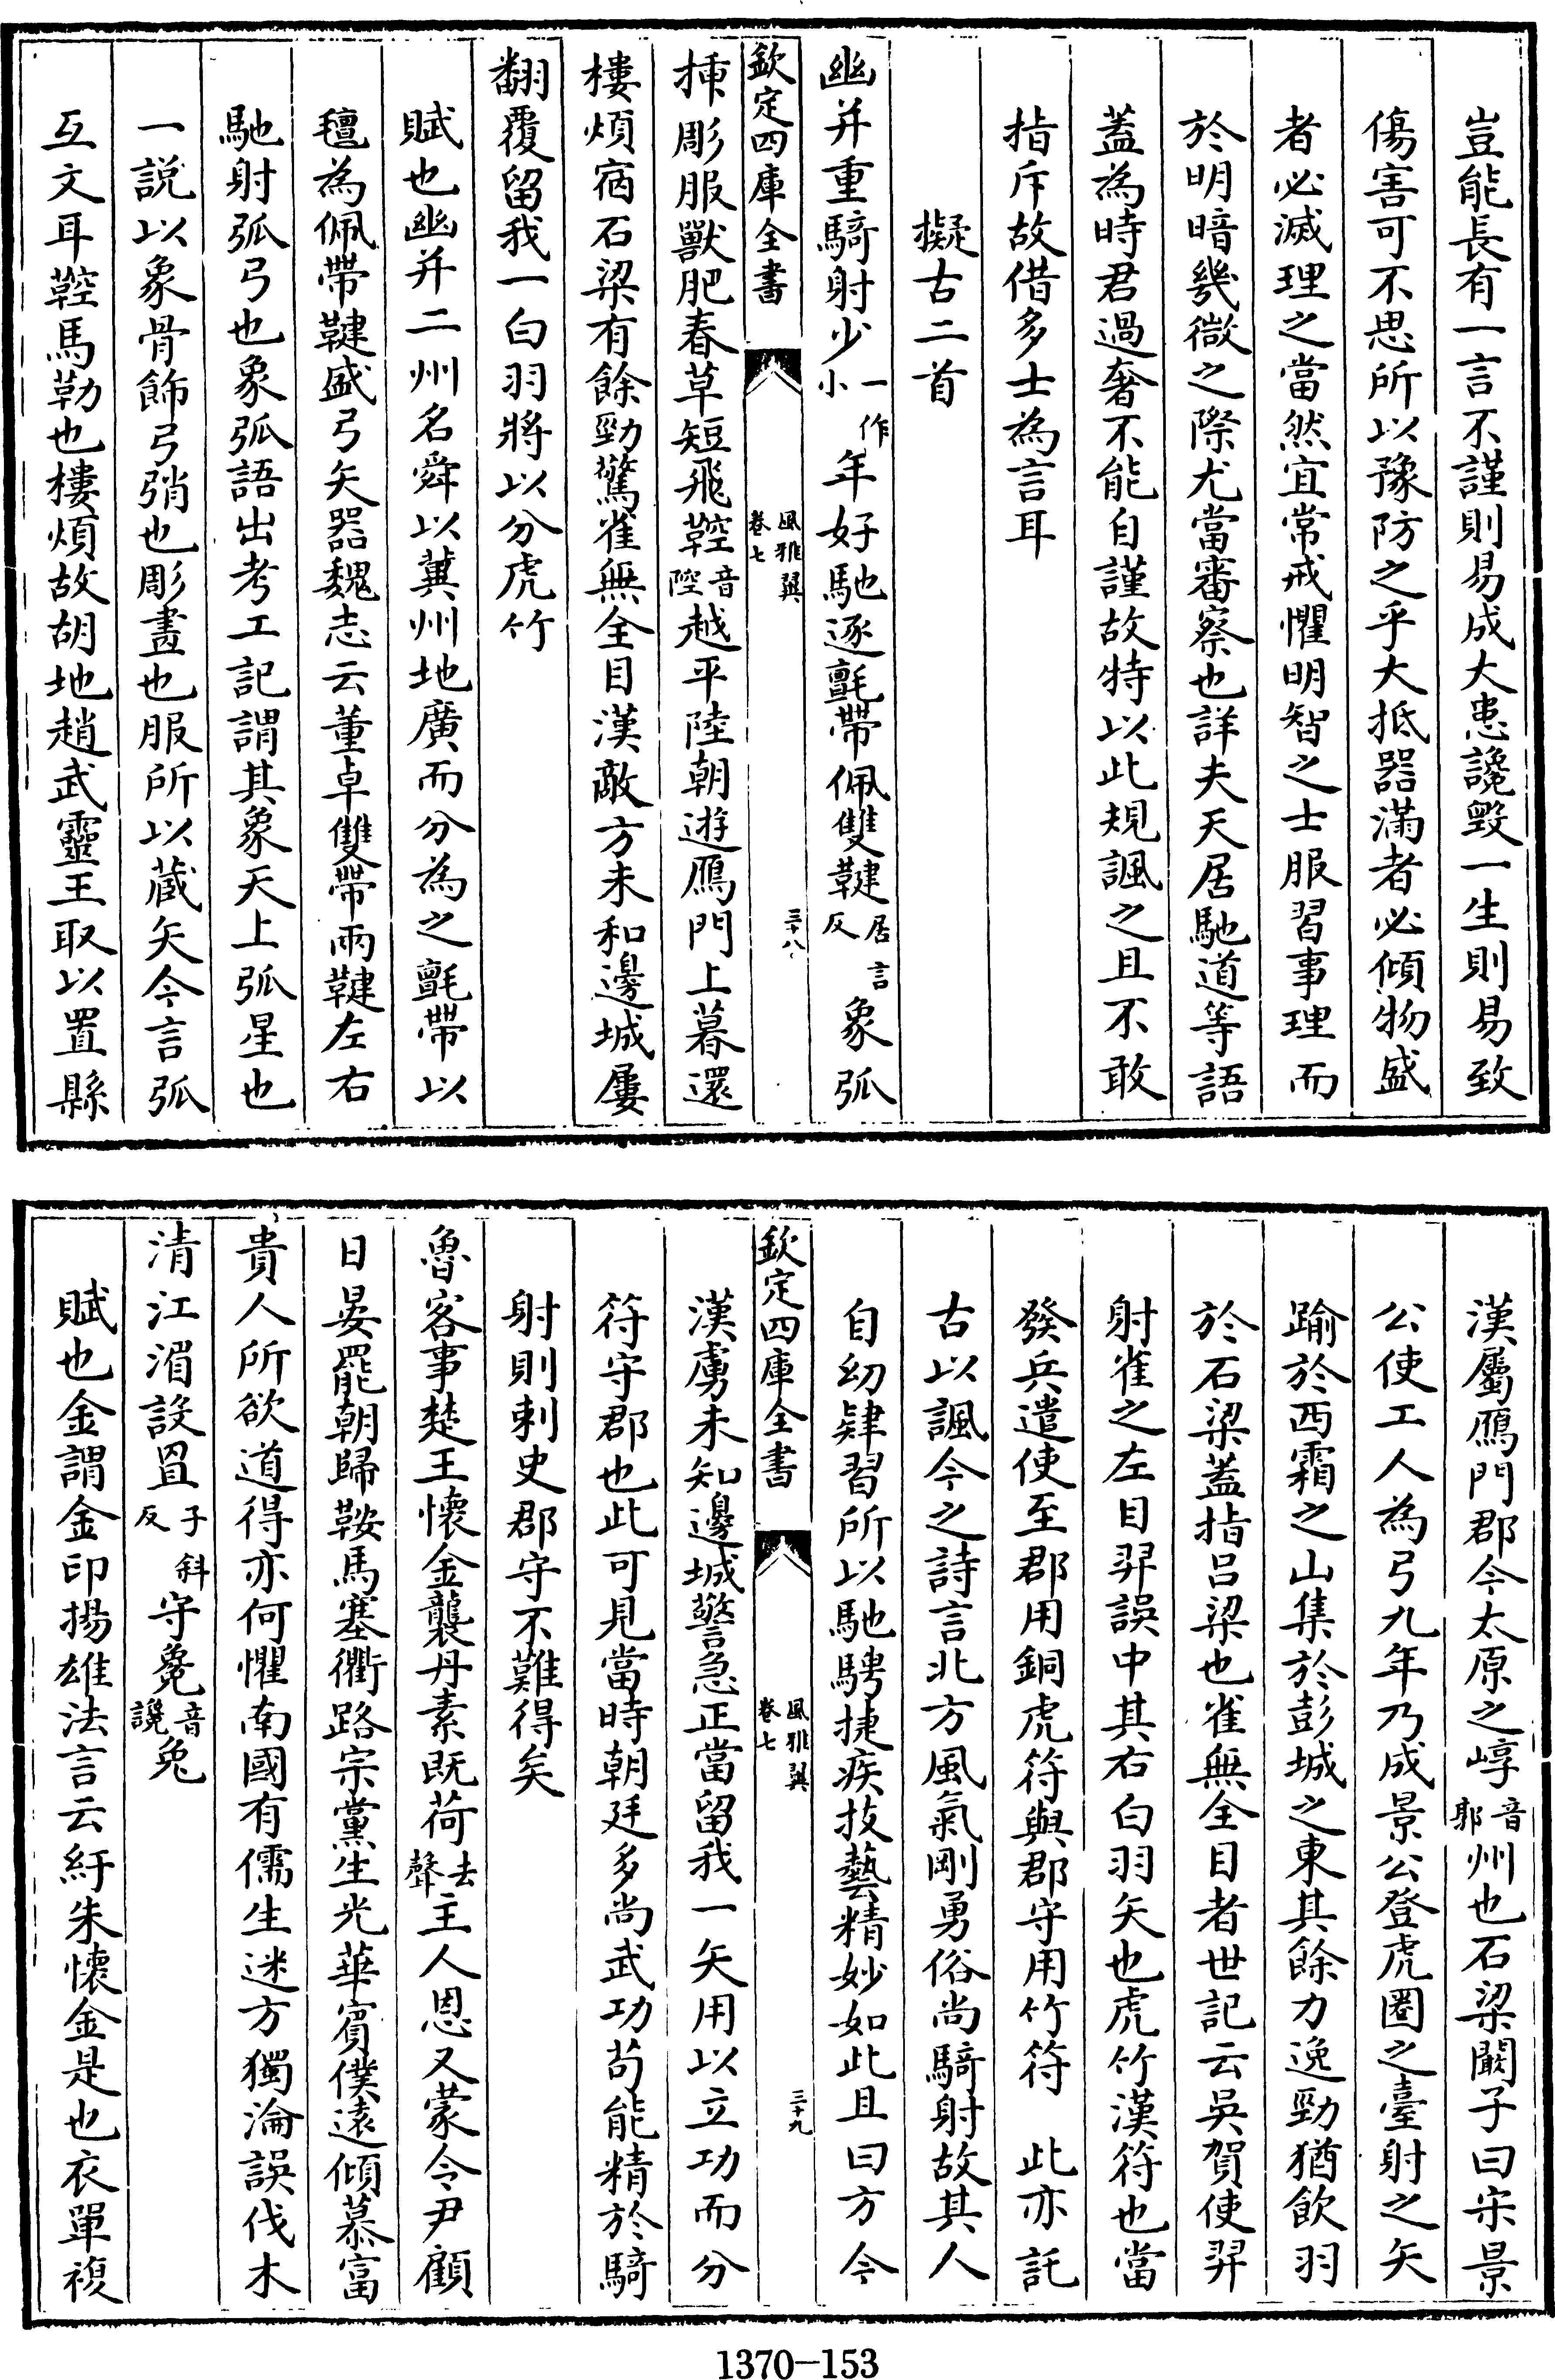 豈能長有一言不謹則易成大患讒毀一生則易致
傷害可不思所以豫防之乎大抵器滿者必傾物盛
者必滅理之當然宜常戒懼明智之士服習事理而
於明暗幾微之際尤當審察也詳夫天居馳道等語
蓋為時君過奢不能自謹故特以此規諷之且不敢
指斥故借多士為言耳
擬古二首
幽并重騎射少一作小年好馳逐氈帶佩雙鞬居言反象弧
欽定四庫全書 風雅翼卷七 三十八
揷彫服獸肥春草短飛鞚音控越平陸朝遊鴈門上暮還
樓煩宿石梁有餘勁驚雀無全目漢敵方未和邊城屢
翻覆留我一白羽將以分虎竹
賦也幽并二州名舜以冀州地廣而分為之氈帶以
氊為佩帶鞬盛弓矢器魏志云董卓雙帶兩鞬左右
馳射弧弓也象弧語出考工記謂其象天上弧星也
一說以象骨飾弓弰也彫畫也服所以藏矢今言弧
互文耳鞚馬勒也樓煩故胡地趙武靈王取以置縣
漢屬鴈門郡今太原之崞音郭州也石梁闞子曰宋景
公使工人為弓九年乃成景公登虎圈之臺射之矢
踰於西霜之山集於彭城之東其餘力逸勁猶飲羽
於石梁蓋指呂梁也雀無全目者世記云吳賀使羿
射雀之左目羿誤中其右白羽矢也虎竹漢符也當
發兵遣使至郡用銅虎符與郡守用竹符 此亦託
古以諷今之詩言北方風氣剛勇俗尚騎射故其人
自幼肄習所以馳騁捷疾技藝精妙如此且曰方今
欽定四庫全書 風雅翼卷七 三十九
漢虜未知邊城警急正當留我一矢用以立功而分
符守郡也此可見當時朝廷多尚武功苟能精於騎
射則刺史郡守不難得矣
魯客事楚王懷金襲丹素既荷去聲主人恩又蒙令尹顧
日晏罷朝歸鞍馬塞衢路宗黨生光華賓僕遠傾慕富
貴人所欲道得亦何懼南國有儒生迷方獨淪誤伐木
清江湄設罝子斜反守毚音讒兔
賦也金謂金印揚雄法言云紆朱懷金是也衣單複
1370-153